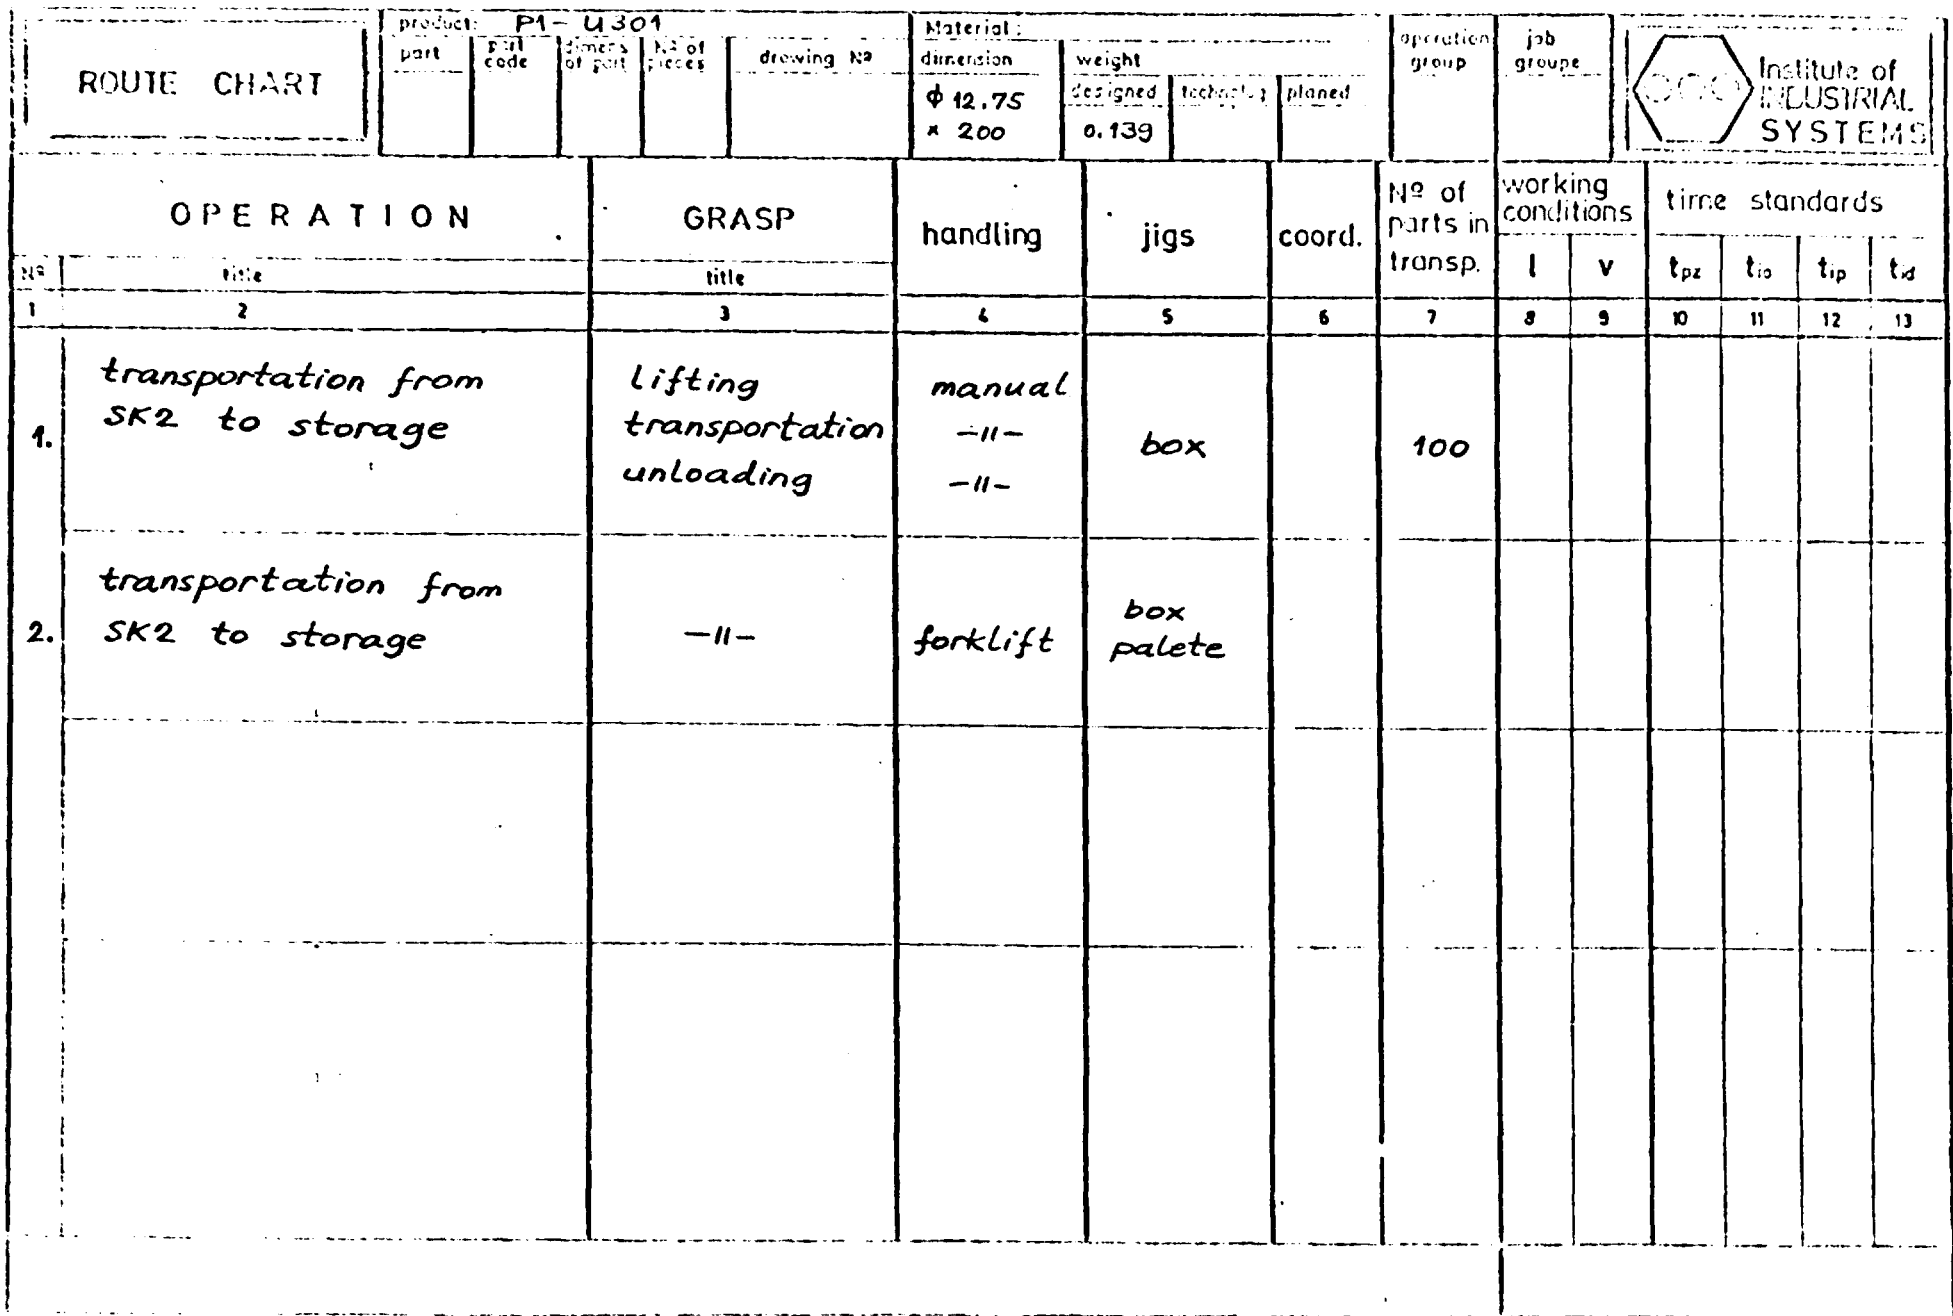 ROUTE CHART
product: P1 - U301
part
part code
dimens of part
Nº of pieces
drowing Nº
Material:
dimension
φ 12.75
× 200
weight
designed
0.139
planed
operation group
job groupe
Institute of
INDUSTRIAL
SYSTEMS
OPERATION
Nº title
GRASP
title
handling
jigs
coord.
Nº of
parts in
transp.
working
conditions
l v
time standards
tpz tio tip tid
1 2 3 4 5 6 7 8 9 10 11 12 13
1.
transportation from
SK2 to storage
lifting
transportation
unloading
manual
—〃—
—〃—
box
100
2.
transportation from
SK2 to storage
—〃—
forklift
box
palete